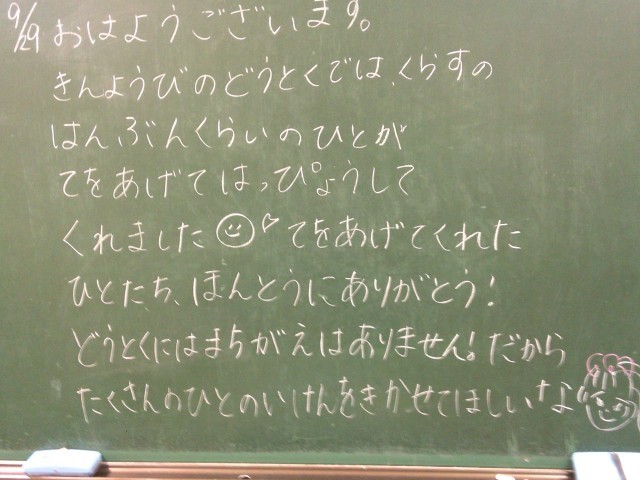 9/29 おはようございます。
きんようびのどうとくでは、くらすの
はんぶんくらいのひとが
てをあげてはっぴょうして
くれました てをあげてくれた
ひとたち、ほんとうにありがとう!
どうとくにはまちがえはありません!だから
たくさんのひとのいけんをきかせてほしいなぁ